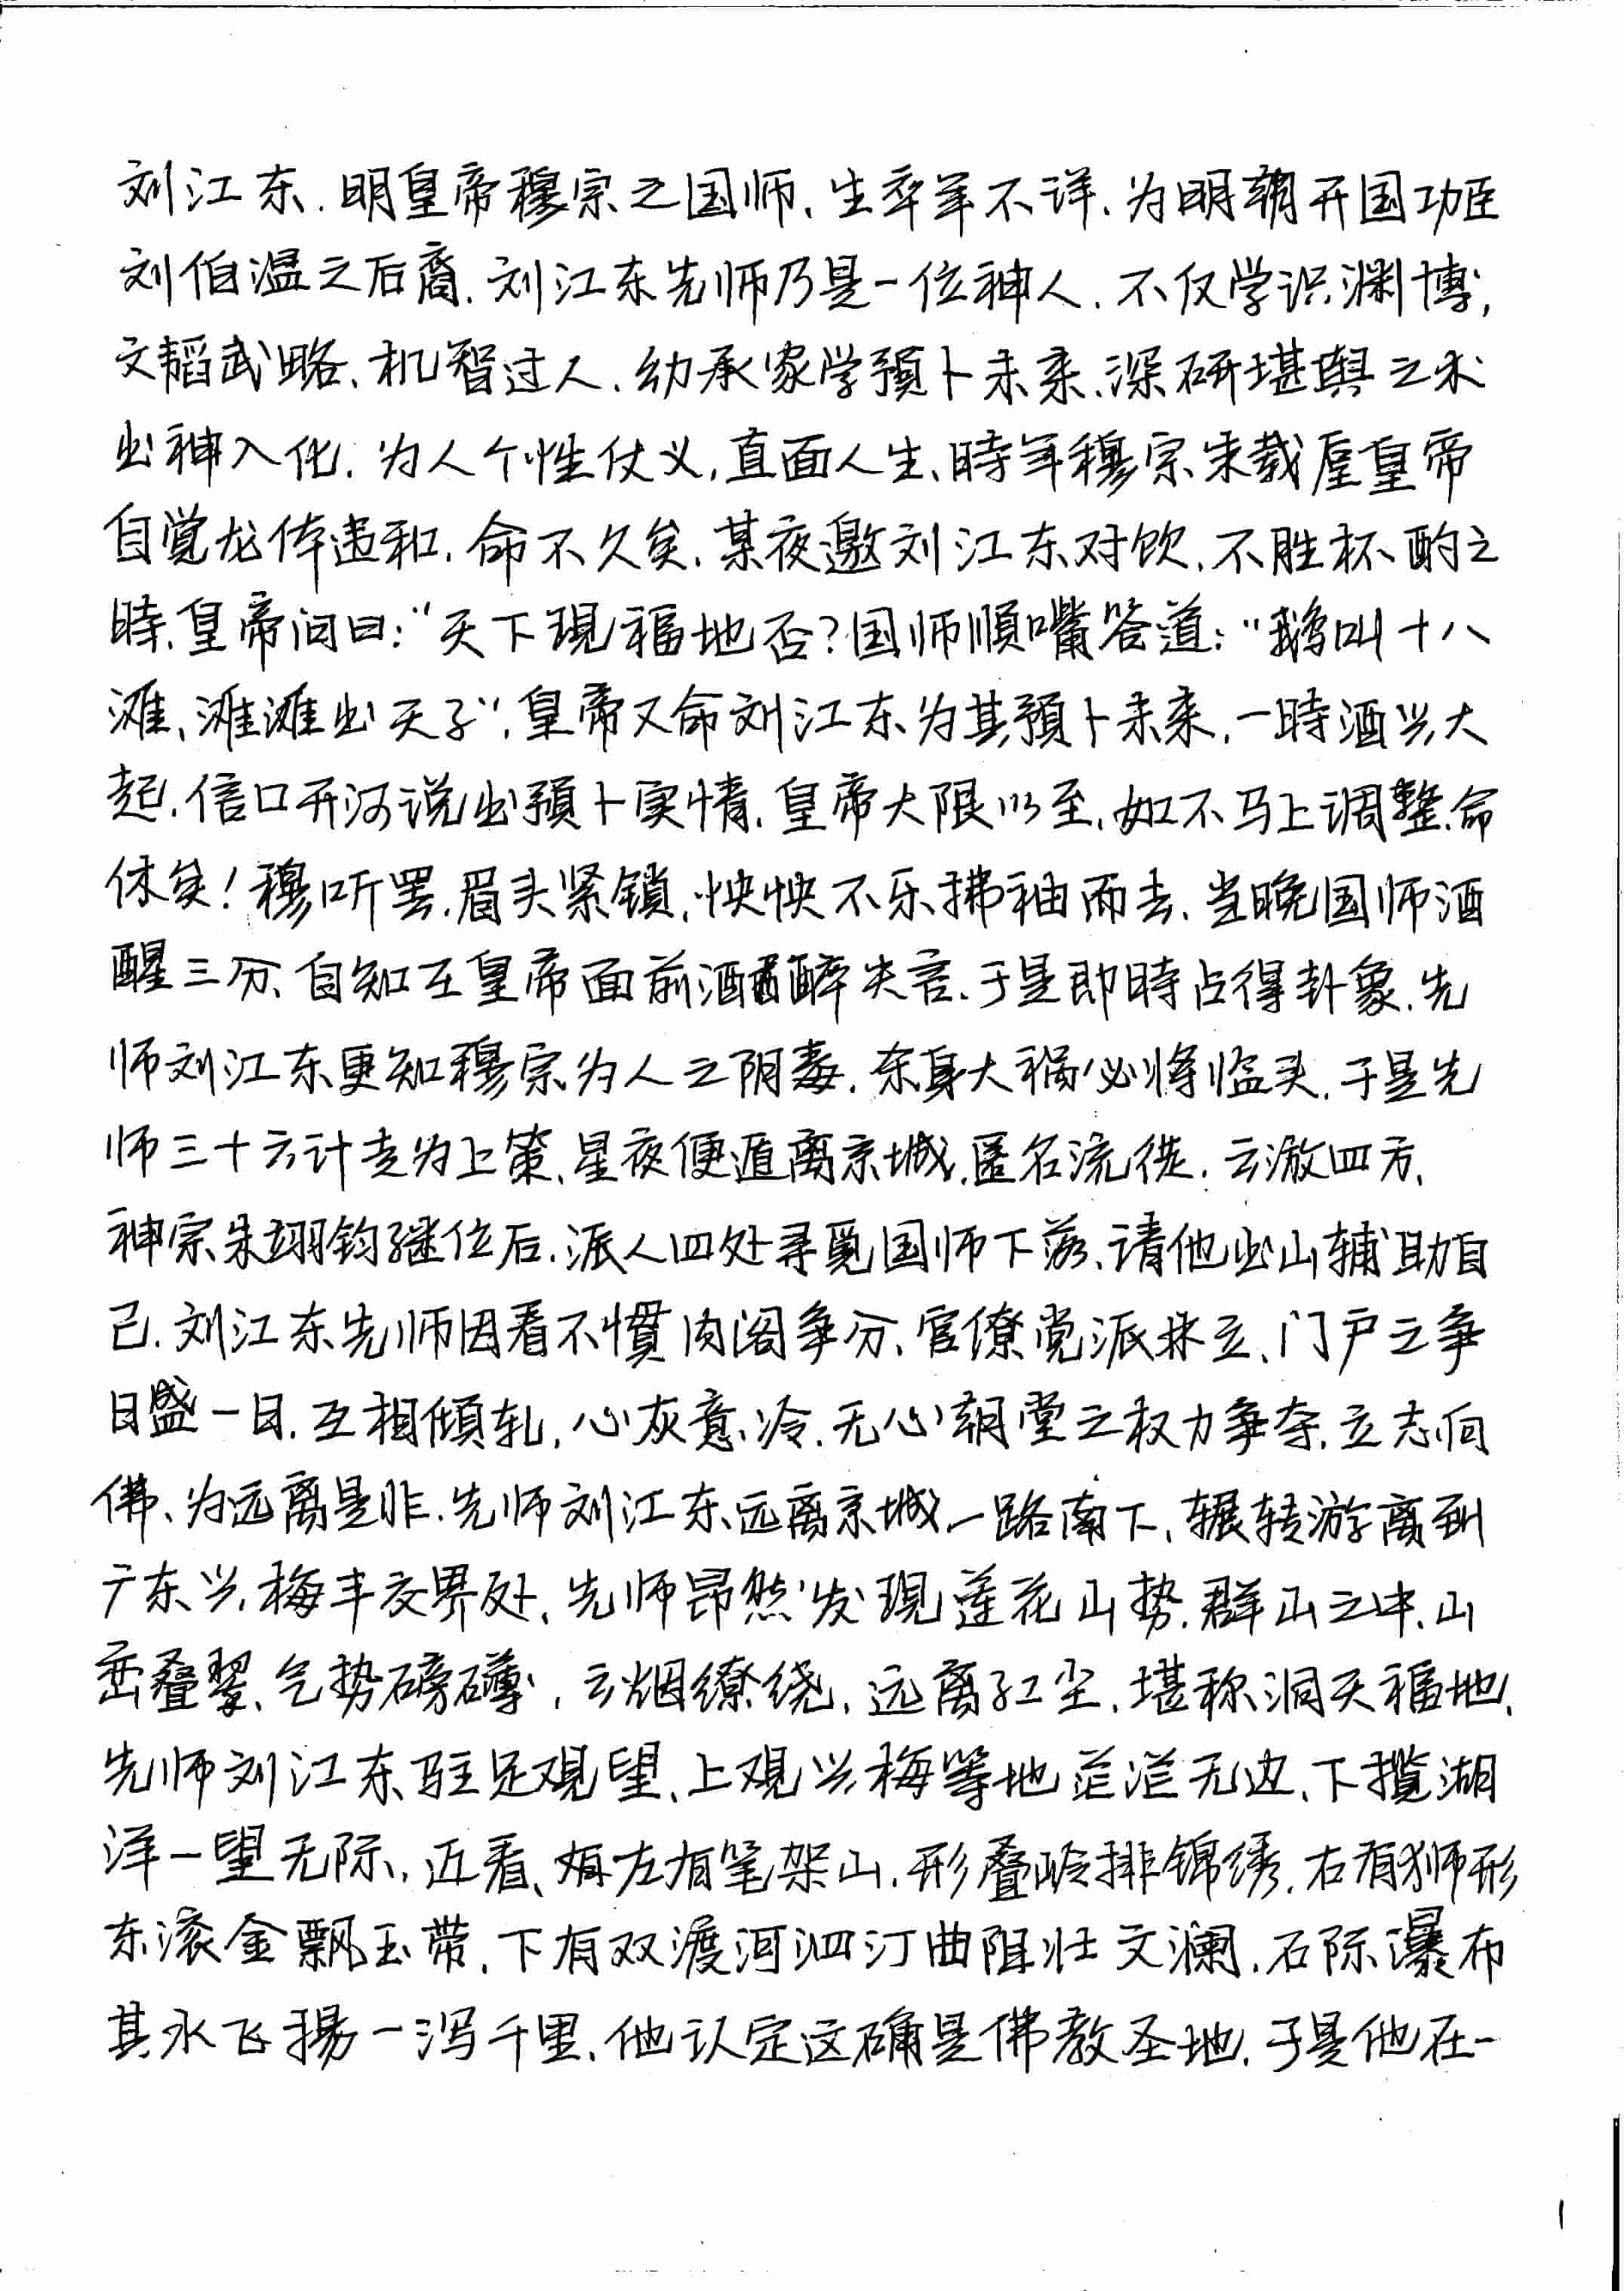 刘江东.明皇帝穆宗之国师、生卒年不详、为明朝开国功臣
刘伯温之后裔.刘江东先师乃是一位神人.不仅学识渊博,
文韬武略、机智过人.幼承家学預卜未来.深研堪舆之术
出神入化.为人个性仗义,直面人生、時年穆宗朱载垕皇帝
自觉龙体违和.命不久矣.某夜邀刘江东对饮.不胜杯酌之
時.皇帝问曰:“天下現福地否?国师順嘴答道:“鹅叫十八
滩、滩滩出天子”.皇帝又命刘江东为其預卜未来.一時酒兴大
起.信口开河说出預卜实情.皇帝大限以至.如不马上调整.命
休矣!穆听罢.眉头紧锁,怏怏不乐拂袖而去.当晚国师酒
醒三分、自知在皇帝面前酒醉失言.于是即時占得卦象.先
师刘江东更知穆宗为人之阴毒.东身大祸必将临头.于是先
师三十六计走为上策、星夜便遁离京城.匿名流徙.云游四方.
神宗朱翊钧継位后.派人四处寻覓国师下落、请他出山辅助自
己.刘江东先师因看不慣内阁争分、官僚党派林立、门户之争
日盛一日.互相傾轧,心灰意冷.无心朝堂之权力争夺.立志向
佛、为远离是非.先师刘江东远离京城.一路南下、辗转游离到
广东兴梅丰交界处、先师昂然发現莲花山势.群山之中.山
峦叠翠、气势磅礴,云烟缭绕,远离红尘.堪称洞天福地.
先师刘江东驻足观望、上观兴梅等地茫茫无边、下揽湖
洋一望无际.近看、左有笔架山.形叠岭排锦绣.右有狮形
东滚金飘玉带.下有双渡河泗汀曲阻壮文澜.石际瀑布
其水飞揚一泻千里.他认定这确是佛教圣地.于是他在一
1